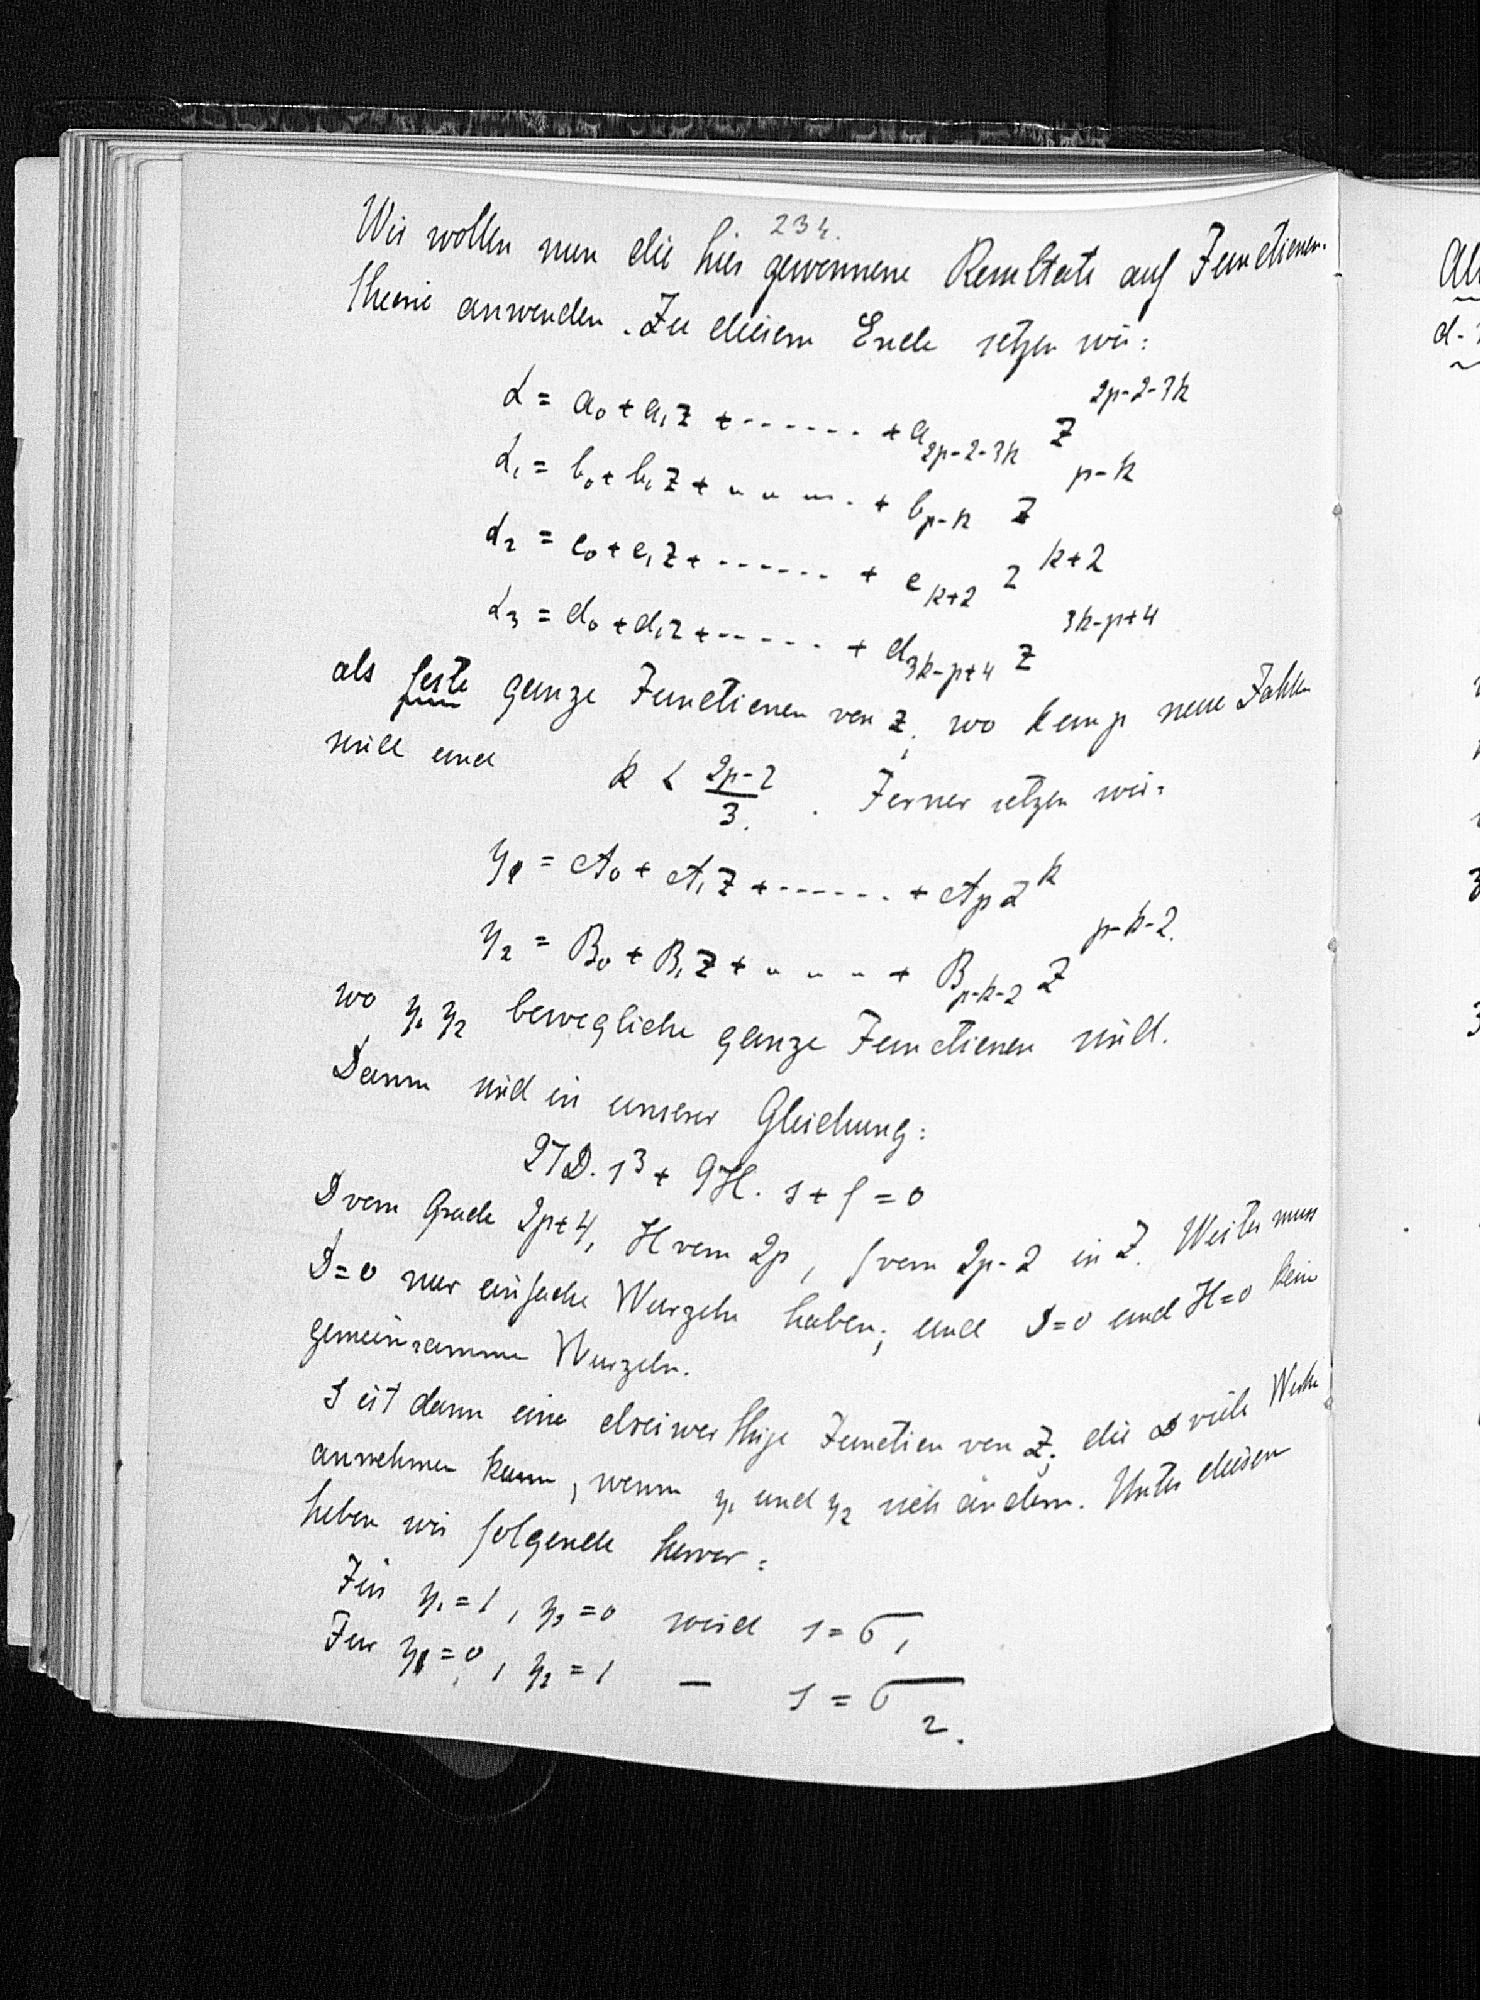 234.
Wir wollen nun die hier gewonnene Resultate auf Functionen-
theorie anwenden. Zu diesem Ende setzen wir:
α = a₀ + a₁ z + ······ + a_{2p-2-3k} z^{2p-2-3k}
α₁ = b₀ + b₁ z + ···· + b_{p-k} z^{p-k}
α₂ = c₀ + c₁ z + ······ + c_{k+2} z^{k+2}
α₃ = d₀ + d₁ z + ····· + d_{3k-p+4} z^{3k-p+4}
als feste ganze Functionen von z, wo k und p neue Zahlen
sind und k < \frac{2p-2}{3}. Ferner setzen wir:
y₁ = A₀ + A₁ z + ······ + A_p z^k
y₂ = B₀ + B₁ z + ···· + B_{p-k-2} z^{p-k-2}.
wo y₁ y₂ bewegliche ganze Functionen sind.
Dann sind in unserer Gleichung:
27D. s³ + 9H. s + f = 0
D vom Grade 2p+4, H vom 2p, f vom 2p-2 in z. Weiter muss
D=0 nur einfache Wurzeln haben; und D=0 und H=0 kein
gemeinsamme Wurzeln.
s ist dann eine dreiwerthige Function von z; die ∞ viele Werthe
annehmen kann, wenn y₁ und y₂ sich ändern. Unter diesen
heben wir folgende hervor:
Für y₁ = 1, y₂ = 0 wird s = σ₁
Für y₁ = 0, y₂ = 1 — s = σ₂.
Al
d-